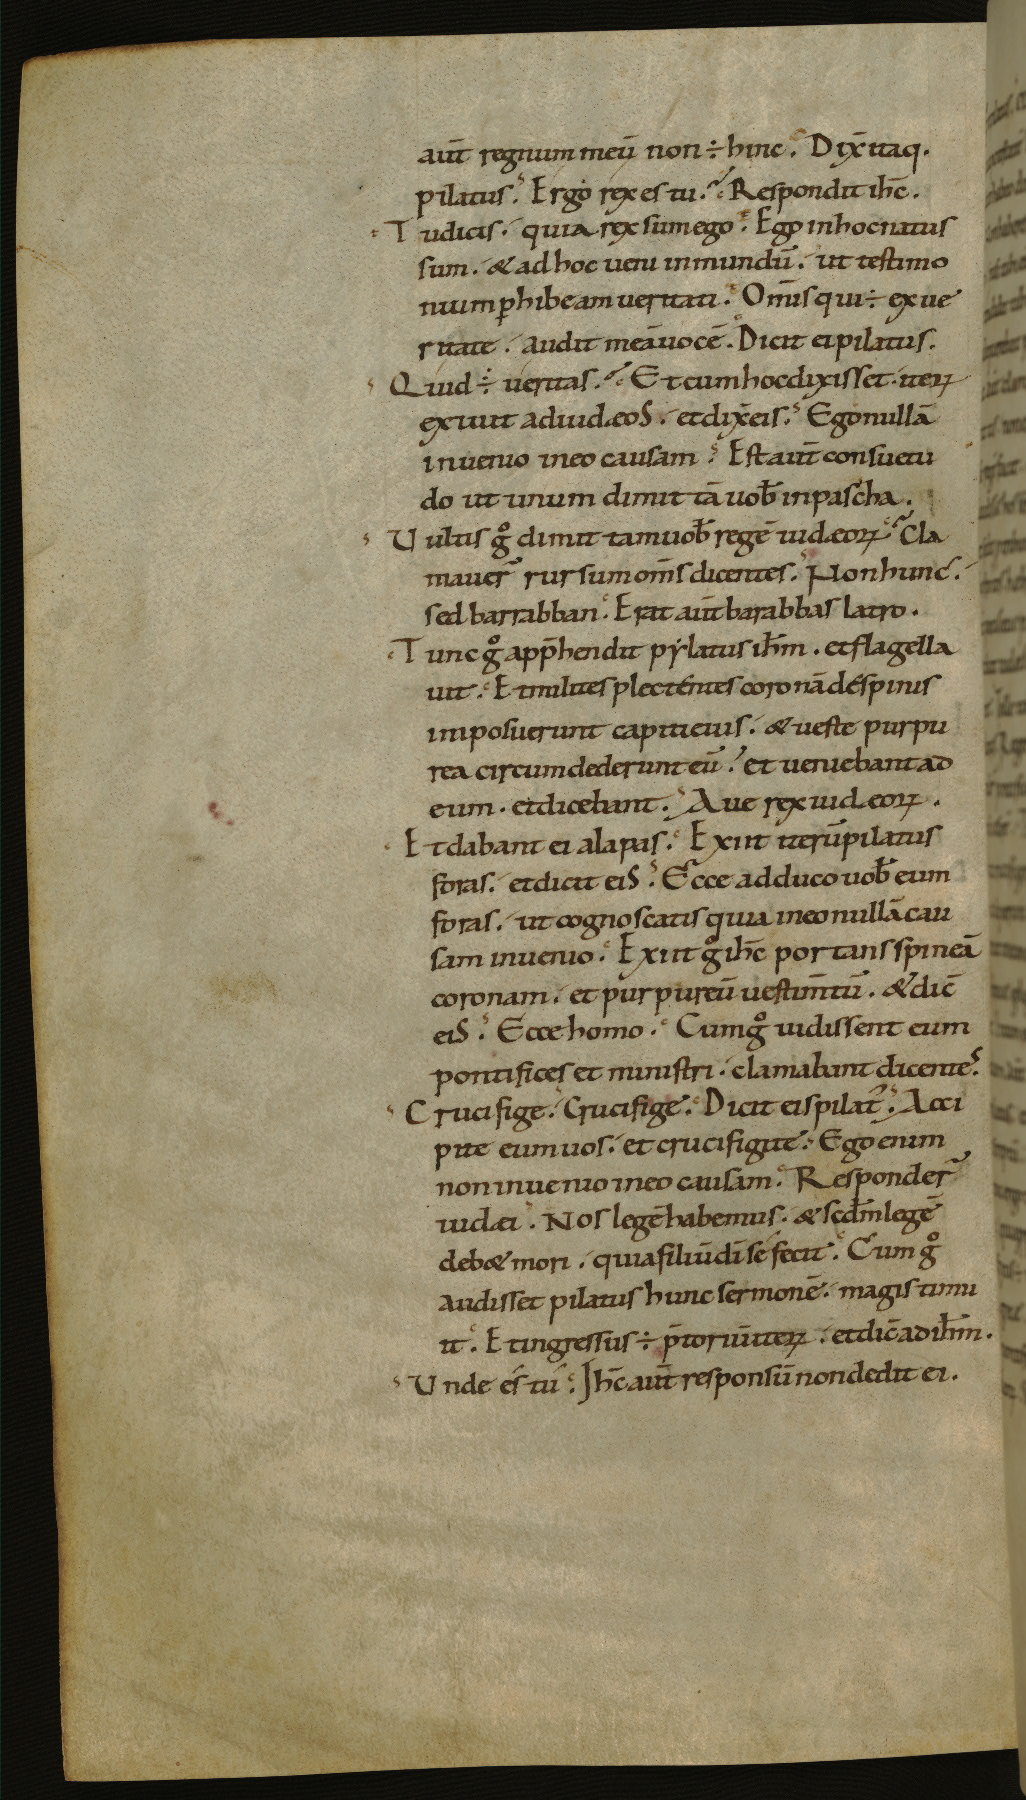 aut̄ regnum meū non ÷ hinc. Dix̄ itaq.
pilatus. Ergo rex es tu. Respondit ih̄c.
Tu dicis. quia rex sum ego. Ego in hoc natus
sum. & ad hoc veni in mundū. ut testimo
nium p̱hibeam veritati. Om̄s qui ÷ ex ve
ritate. audit meā vocē. Dicit ei pilatus.
Quid ÷ veritas. Et cum hoc dixisset. iterꝝ
exivit ad iudæos. et dix̄ eis. Ego nullā
invenio in eo causam. Est aut̄ consuetu
do ut unum dimittā vob̄ in pascha.
Vultis gͦ dimittam vob̄ regē iudæoꝝ. Cla
maver̄ rursum om̄s dicentes. Non hunc.
sed barrabban. Erat aut̄ barabbas latro.
Tunc gͦ app̄hendit pẏlatus ih̄m. et flagella
vit. Et milites plectentes coronā de spinis
imposuerunt capiti eius. & veste purpu
rea circumdederunt eū. et veniebant ad
eum. et dicebant. Ave rex iudæoꝝ.
Et dabant ei alapas. Exiit iterū pilatus
foras. et dicit eis. Ecce adduco vob̄ eum
foras. ut cognoscatis quia in eo nullā cau
sam invenio. Exiit gͦ ih̄c portans spineā
coronam. et purpureū vestim̄tū. & dic̄
eis. Ecce homo. Cum gͦ vidissent eum
pontifices et ministri. clamabant dicentes.
Crucifige. Crucifige. Dicit eis pilat᾿. Acci
pite eum vos. et crucifigite. Ego enim
non invenio in eo causam. Responder̄
iudæi. Nos legē habemus. & scd̄m legē
deb& mori. quia filiū dī se fecit. Cum gͦ
audisset pilatus hunc sermonē. magis timu
it. Et ingressus ÷ p̄toriū iterꝝ. et dic̄ ad ih̄m.
Unde es tu. Ih̄c aut̄ responsū non dedit ei.